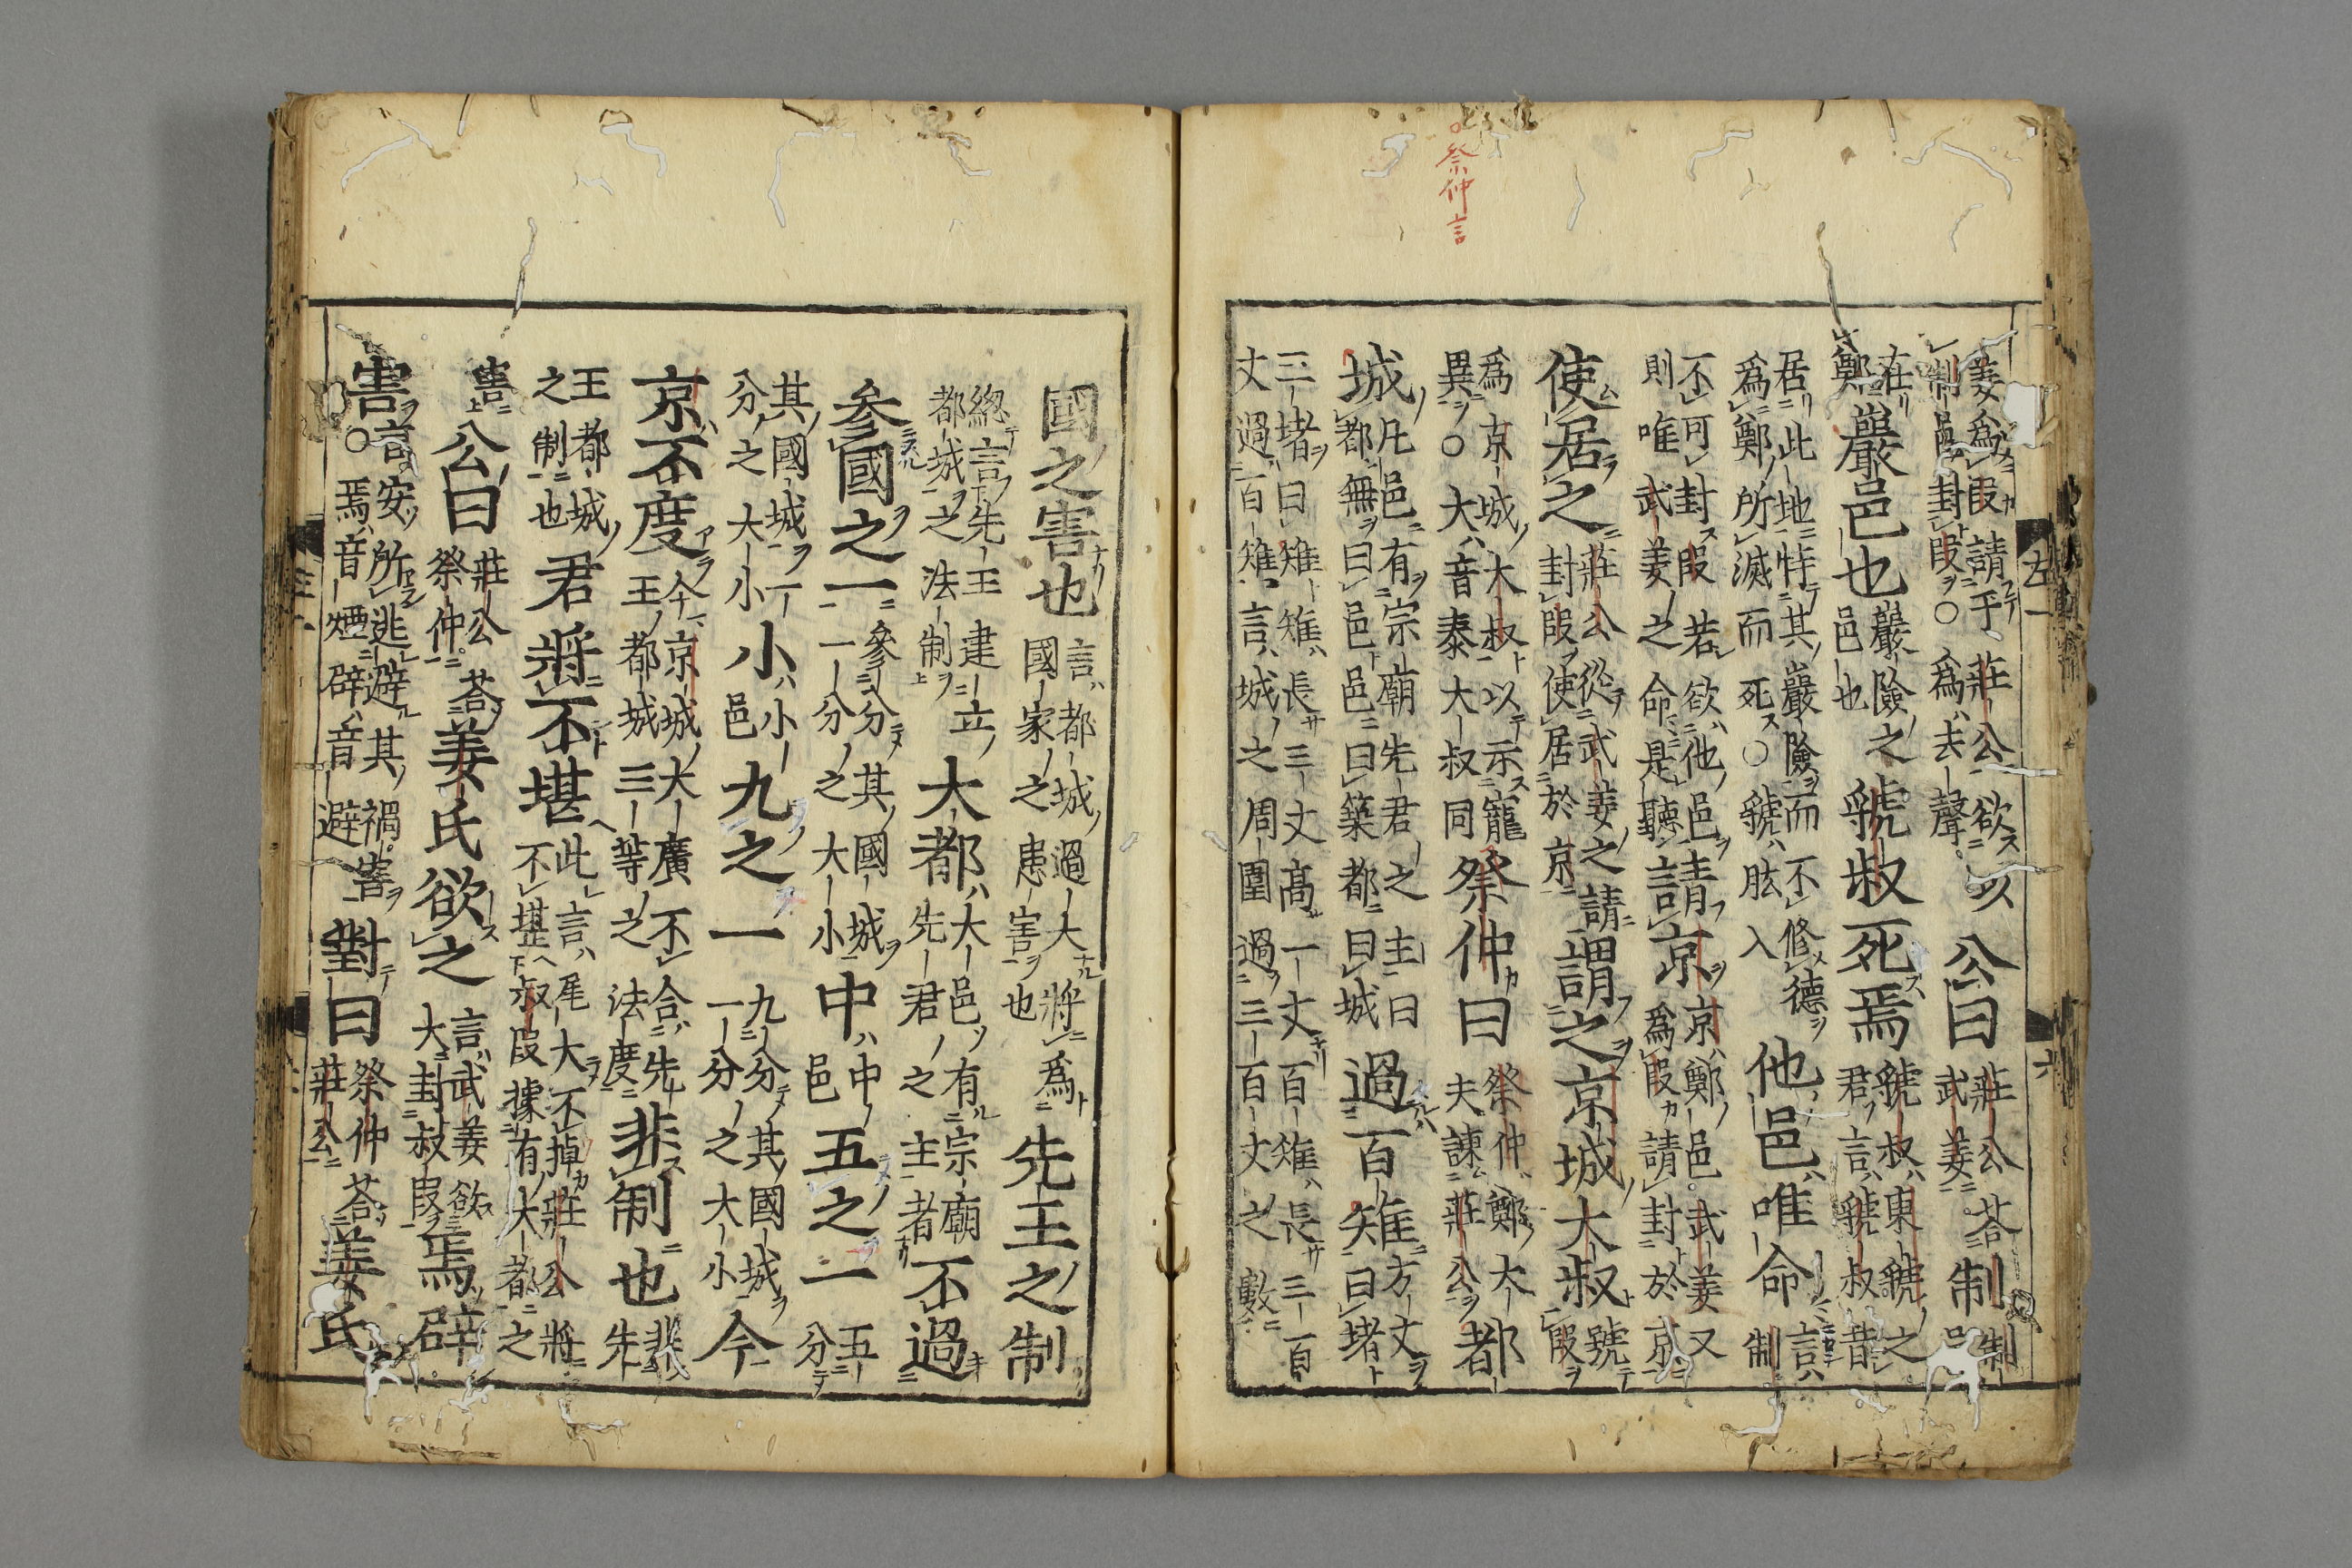 祭仲言
姜爲段請乎莊公欲以
制邑封段○爲去聲
公曰
莊公荅
武姜
制
制
邑
在
鄭
巖邑也
巖險之
邑也
虢叔死焉
虢叔東虢之
君言虢叔昔
居此地恃其巖險而不修德
爲鄭所滅而死○虢肱入
他邑唯命
言
制
不可封段若欲他邑
則唯武姜之命是聽
請京
京鄭邑武姜又
爲段請封於京
使居之
莊公從武姜之請
封段使居於京
謂之京城大叔
號
段
爲京城大叔以示寵
異○大音泰大叔同
祭仲曰
祭仲鄭大
夫諫莊公
都
城
凡邑有宗廟先君之主曰
都無曰邑邑曰築都曰城
過百雉
方丈
曰堵
三堵曰雉雉長三丈高一丈百雉長三百
丈過百雉言城之周圍過三百丈之數
左一
六
國之害也
言都城過大將爲
國家之患害也
先王之制
緫言先王建立
都城之法制
大都
大邑有宗廟
先君之主者
不過
參國之一
參分其國城
一分之大小
中
中
邑
五之一
五
分
其國城一
分之大小
小
小
邑
九之一
九分其國城
一分之大小
今
京不度
今京城大廣不合先
王都城三等之法度
非制也
非
先
王都城
之制也
君將不堪
此言尾大不掉莊公將
不堪叔段據有大都之
害
公曰
莊公荅
祭仲
姜氏欲之
言武姜欲
大封叔段
焉辟
害
言安所逃避其禍害
○焉音煙辟音避
對曰
祭仲荅
莊公
姜氏